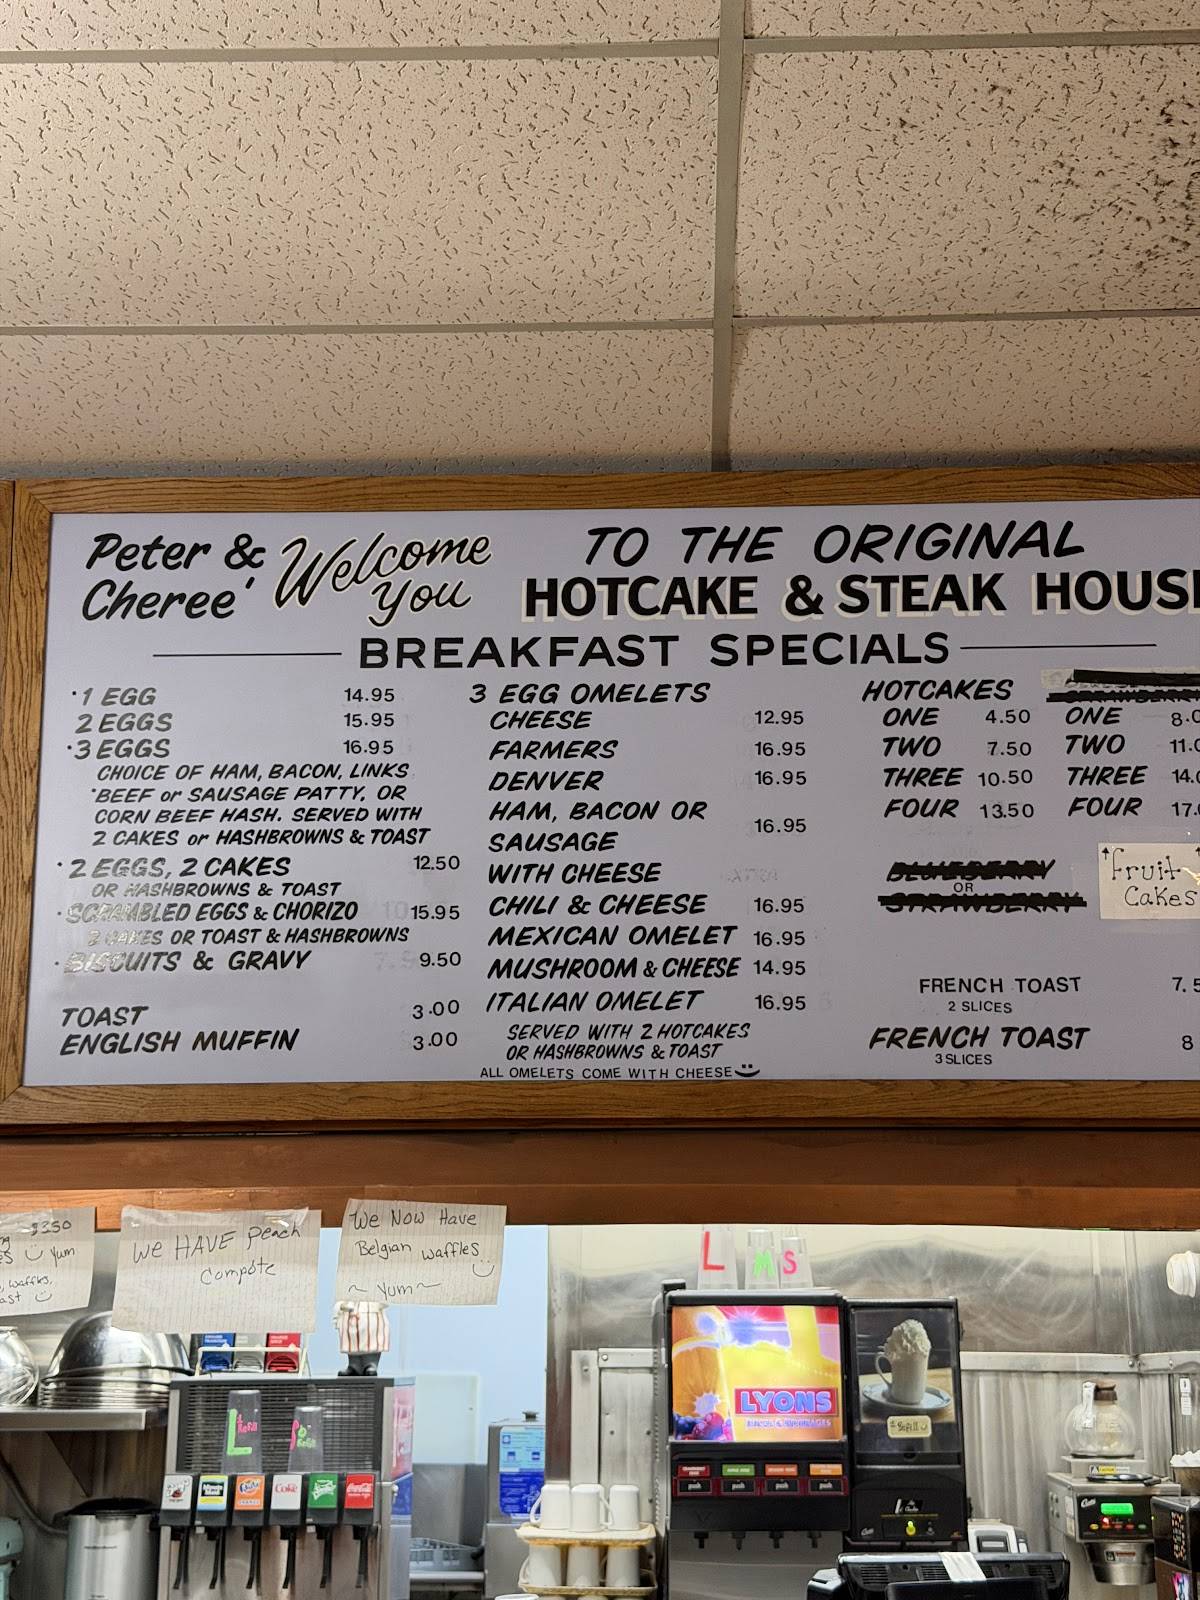 Peter & Cheree' Welcome You
TO THE ORIGINAL
HOTCAKE & STEAK HOUS
BREAKFAST SPECIALS
1 EGG 14.95
2 EGGS 15.95
3 EGGS 16.95
CHOICE OF HAM, BACON, LINKS
BEEF or SAUSAGE PATTY, OR
CORN BEEF HASH. SERVED WITH
2 CAKES or HASHBROWNS & TOAST
2 EGGS, 2 CAKES 12.50
OR HASHBROWNS & TOAST
SCRAMBLED EGGS & CHORIZO 15.95
2 CAKES OR TOAST & HASHBROWNS
BISCUITS & GRAVY 9.50
TOAST 3.00
ENGLISH MUFFIN 3.00
3 EGG OMELETS
CHEESE 12.95
FARMERS 16.95
DENVER 16.95
HAM, BACON OR
SAUSAGE 16.95
WITH CHEESE
CHILI & CHEESE 16.95
MEXICAN OMELET 16.95
MUSHROOM & CHEESE 14.95
ITALIAN OMELET 16.95
SERVED WITH 2 HOTCAKES
OR HASHBROWNS & TOAST
ALL OMELETS COME WITH CHEESE
HOTCAKES
ONE 4.50
TWO 7.50
THREE 10.50
FOUR 13.50
STRAWBERRY
ONE 8.0
TWO 11.0
THREE 14.0
FOUR 17.0
BLUEBERRY
OR
STRAWBERRY
Fruit
Cakes
FRENCH TOAST 7.5
2 SLICES
FRENCH TOAST 8
3 SLICES
$3.50
Yum
waffles,
We HAVE peach
compote
We Now Have
Belgian waffles
~ Yum ~
L M S
L Refill
S Refill
LYONS
push push push push
Fanta
Coke
Coca-Cola